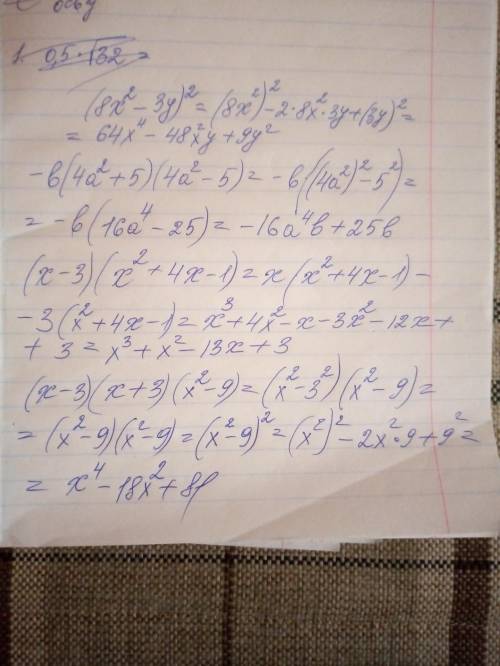 1. 0,5·√32 =
(8x² - 3y)² = (8x²)² - 2·8x²·3y + (3y)² =
= 64x⁴ - 48x²y + 9y²
-b(4a² + 5)(4a² - 5) = -b((4a²)² - 5²) =
= -b(16a⁴ - 25) = -16a⁴b + 25b
(x - 3)(x² + 4x - 1) = x(x² + 4x - 1) -
- 3(x² + 4x - 1) = x³ + 4x² - x - 3x² - 12x +
+ 3 = x³ + x² - 13x + 3
(x - 3)(x + 3)(x² - 9) = (x² - 3²)(x² - 9) =
= (x² - 9)(x² - 9) = (x² - 9)² = (x²)² - 2x²·9 + 9² =
= x⁴ - 18x² + 81